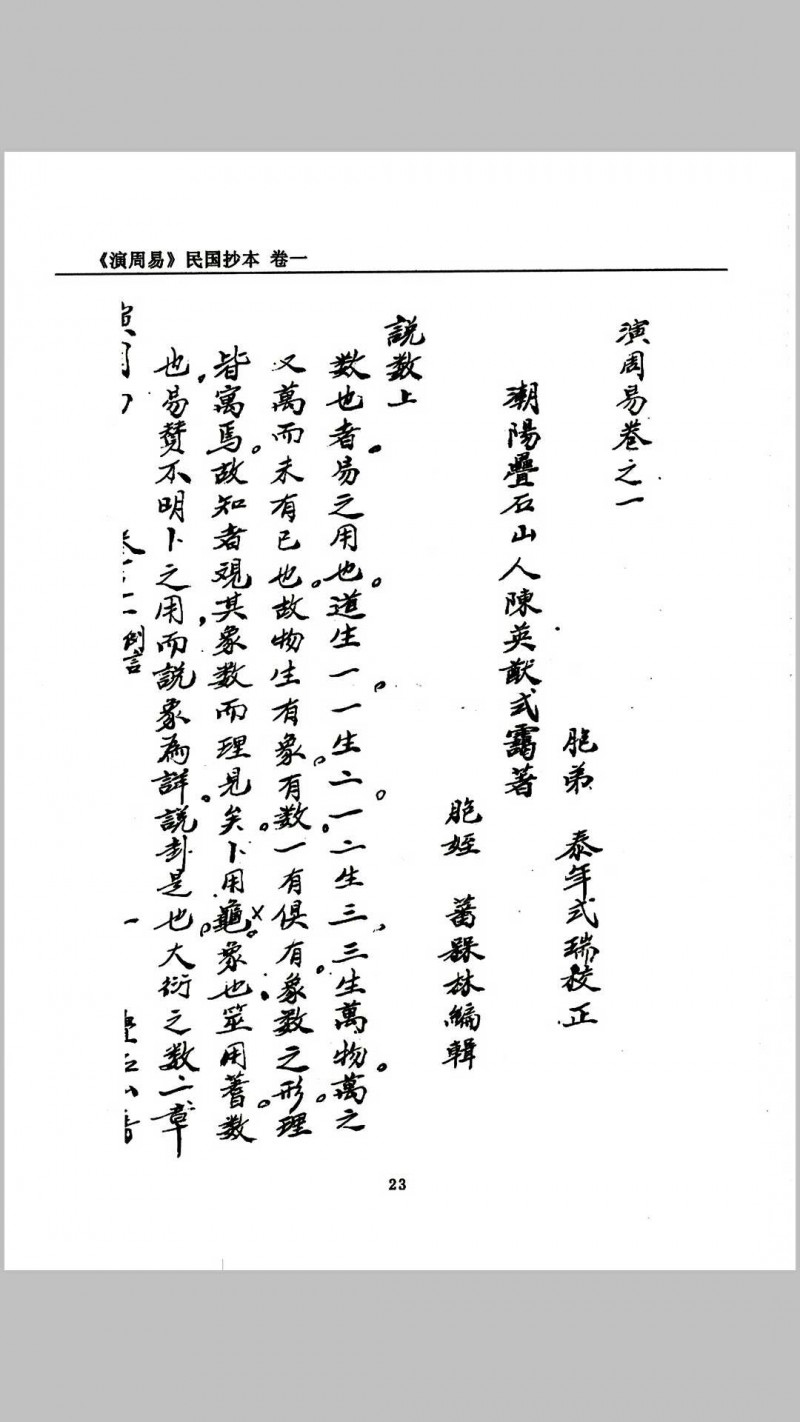 《演周易》民国抄本 卷一
演周易卷之一
潮陽疊石山人陳英猷式靄著
胞弟 泰年式瑞校正
胞姪 蕃槑林編輯
說数上
数也者易之用也。道生一一生二。一二生三三生萬物。萬之
又萬而未有已也。故物生有象。有数一有俱有象数之形。理
皆寓焉。故知者覌其象数而理見矣。卜用龜。象也筮用蓍。数
也易賛不明卜之用而說象為詳。說卦是也。大衍之数二章
例言
23